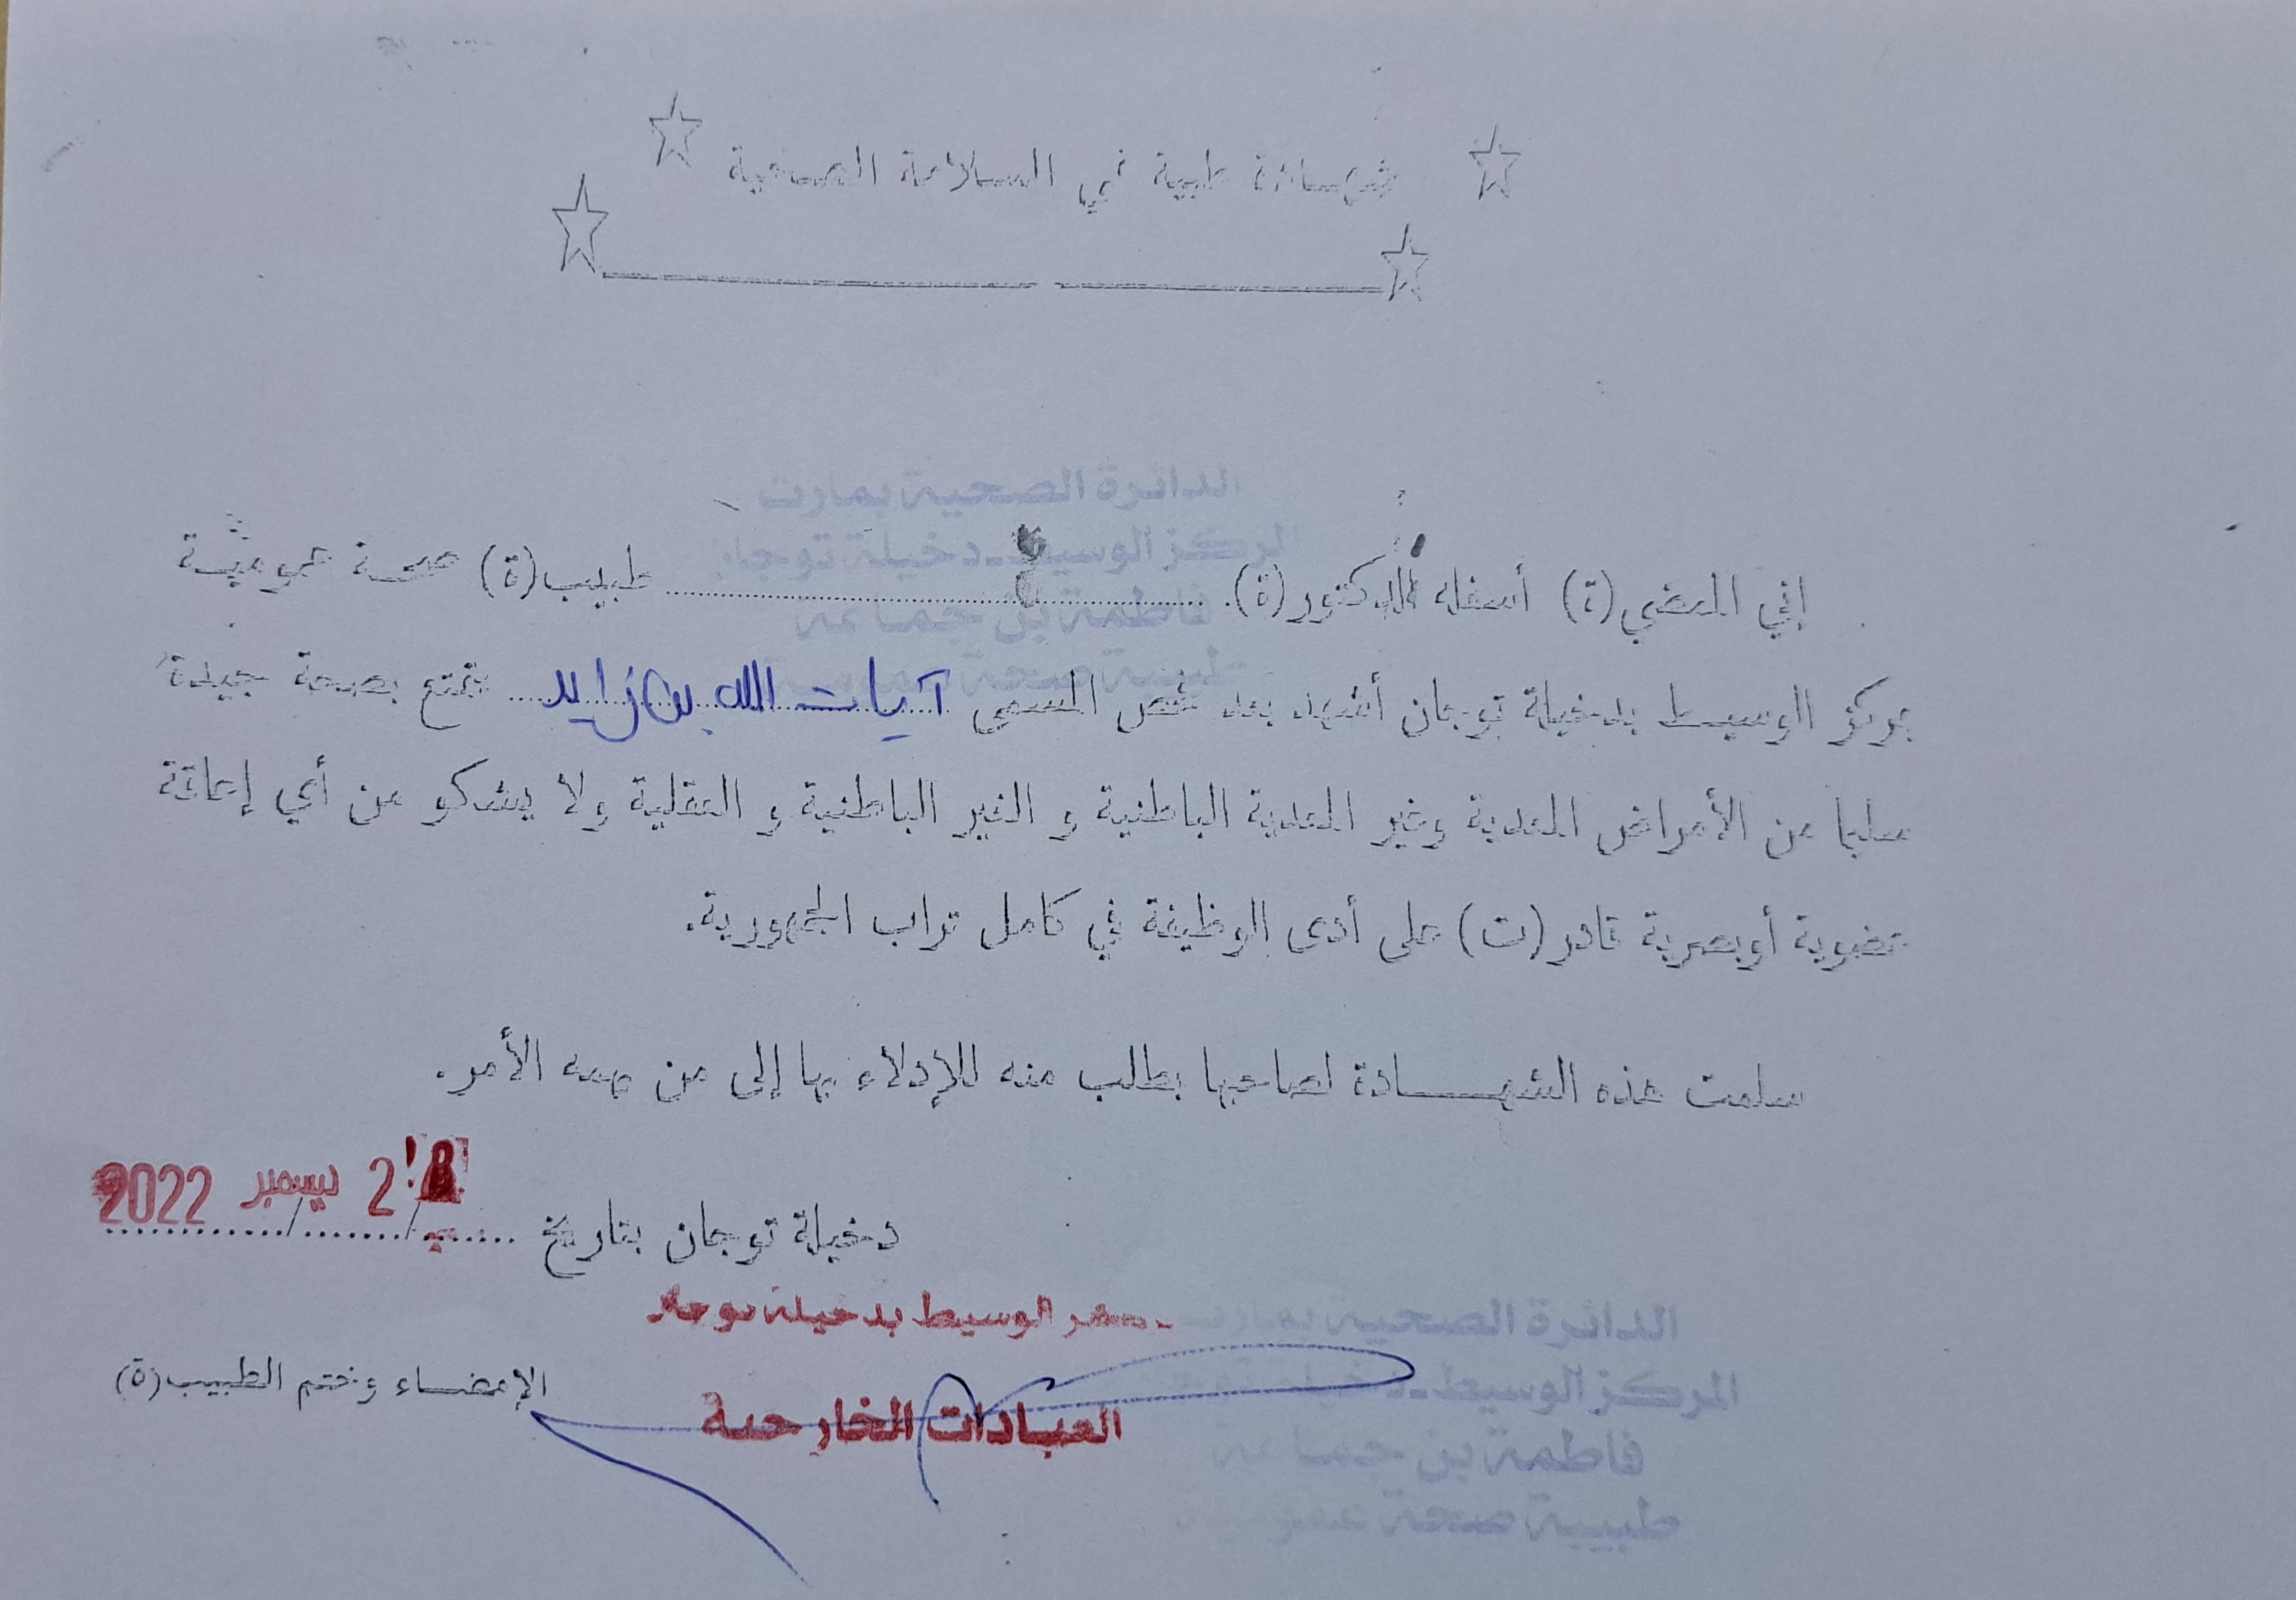 شهادة طبية في السلامة الصحية
الدائرة الصحية بمارث
المركز الوسيط - دخيلة توجان
فاطمة بن جماعة
طبيبة صحة عمومية
إني الممضي (ة) أسفله الدكتور (ة). طبيب (ة) صحة عمومية
بمركز الوسيط بدخيلة توجان أشهد بعد فحص المسمى آيات الله بن زايد تمتع بصحة جيدة
سليما من الأمراض المعدية وغير المعدية الباطنية و الغير الباطنية و العقلية ولا يشكو من أي إعاقة
عضوية أوبصرية قادر (ت) على أدى الوظيفة في كامل تراب الجمهورية.
سلمت هذه الشهـــادة لصاحبها بطلب منه للإدلاء بها إلى من يهمه الأمر.
دخيلة توجان بتاريخ 2 ديسمبر 2022
الوسيط بدخيلة توجان
العيادات الخارجية
الإمضــاء وختم الطبيب (ة)
الدائرة الصحية بمارث
المركز الوسيط - دخيلة
فاطمة بن جماعة
طبيبة صحة